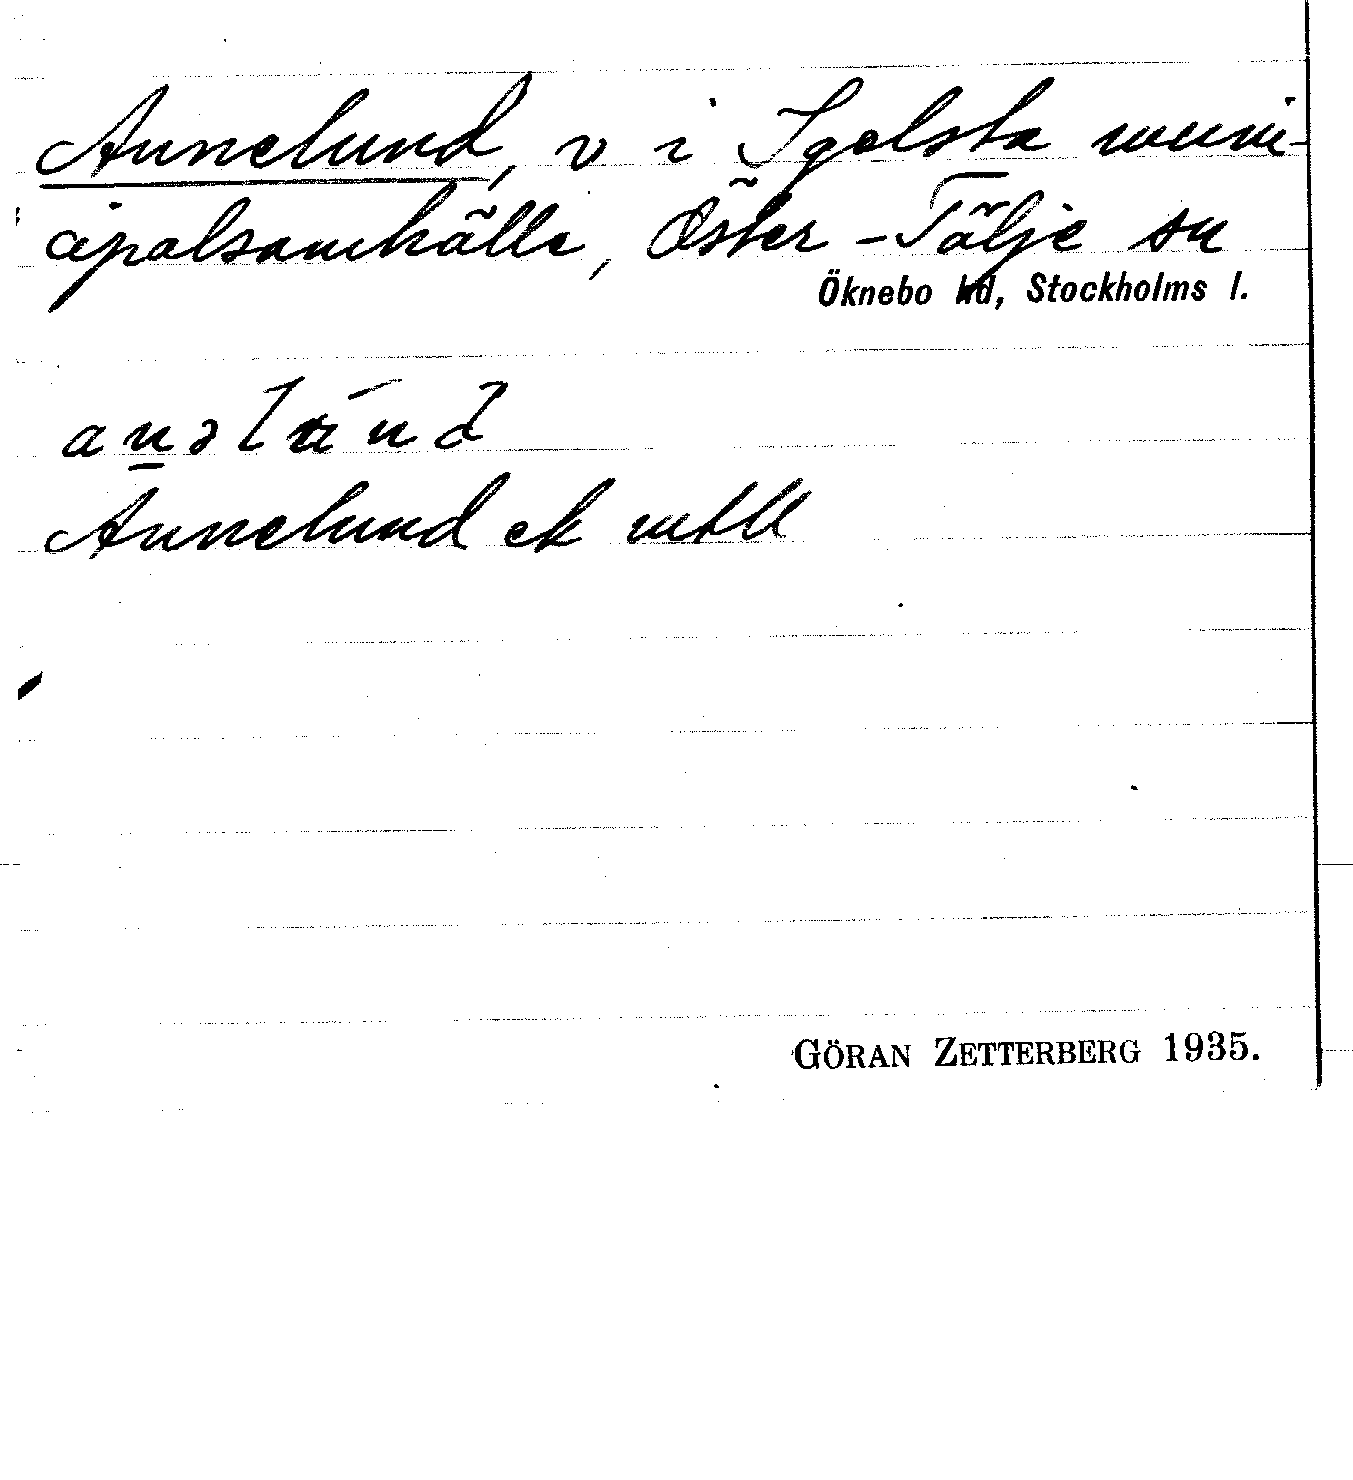 Annelund, v i Igelsta muni-
cipalsamhälle, Öster-Tälje sn
Öknebo hd, Stockholms l.
Annelund ek mtbl
GÖRAN ZETTERBERG 1935.